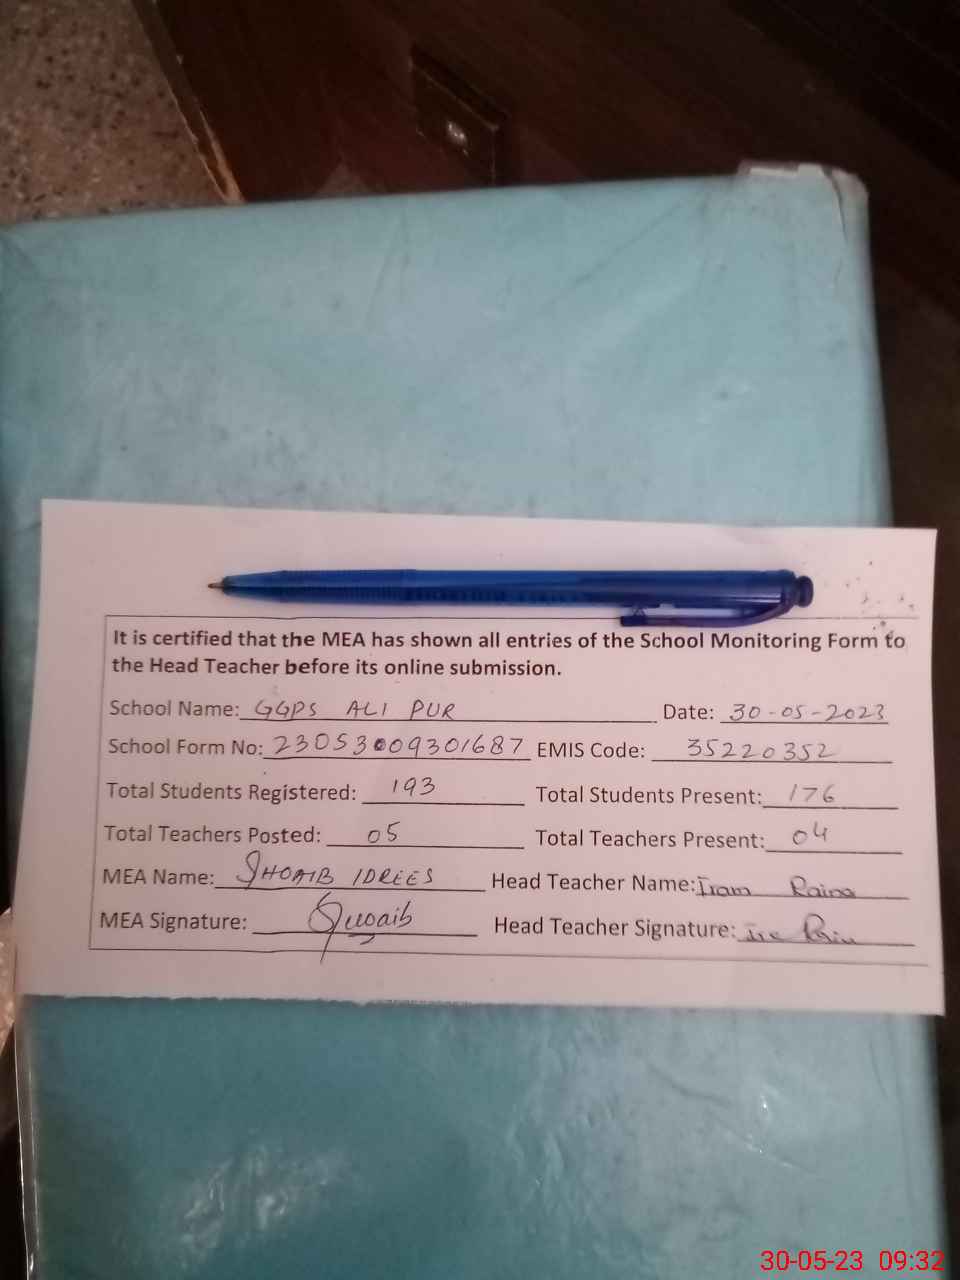 It is certified that the MEA has shown all entries of the School Monitoring Form to
the Head Teacher before its online submission.
School Name: GGPS ALI PUR Date: 30-05-2023
School Form No: 23053009301687 EMIS Code: 35220352
Total Students Registered: 193 Total Students Present: 176
Total Teachers Posted: 05 Total Teachers Present: 04
MEA Name: SHOAIB IDREES Head Teacher Name: Iram Raina
MEA Signature: Shoaib Head Teacher Signature:
30-05-23 09:32